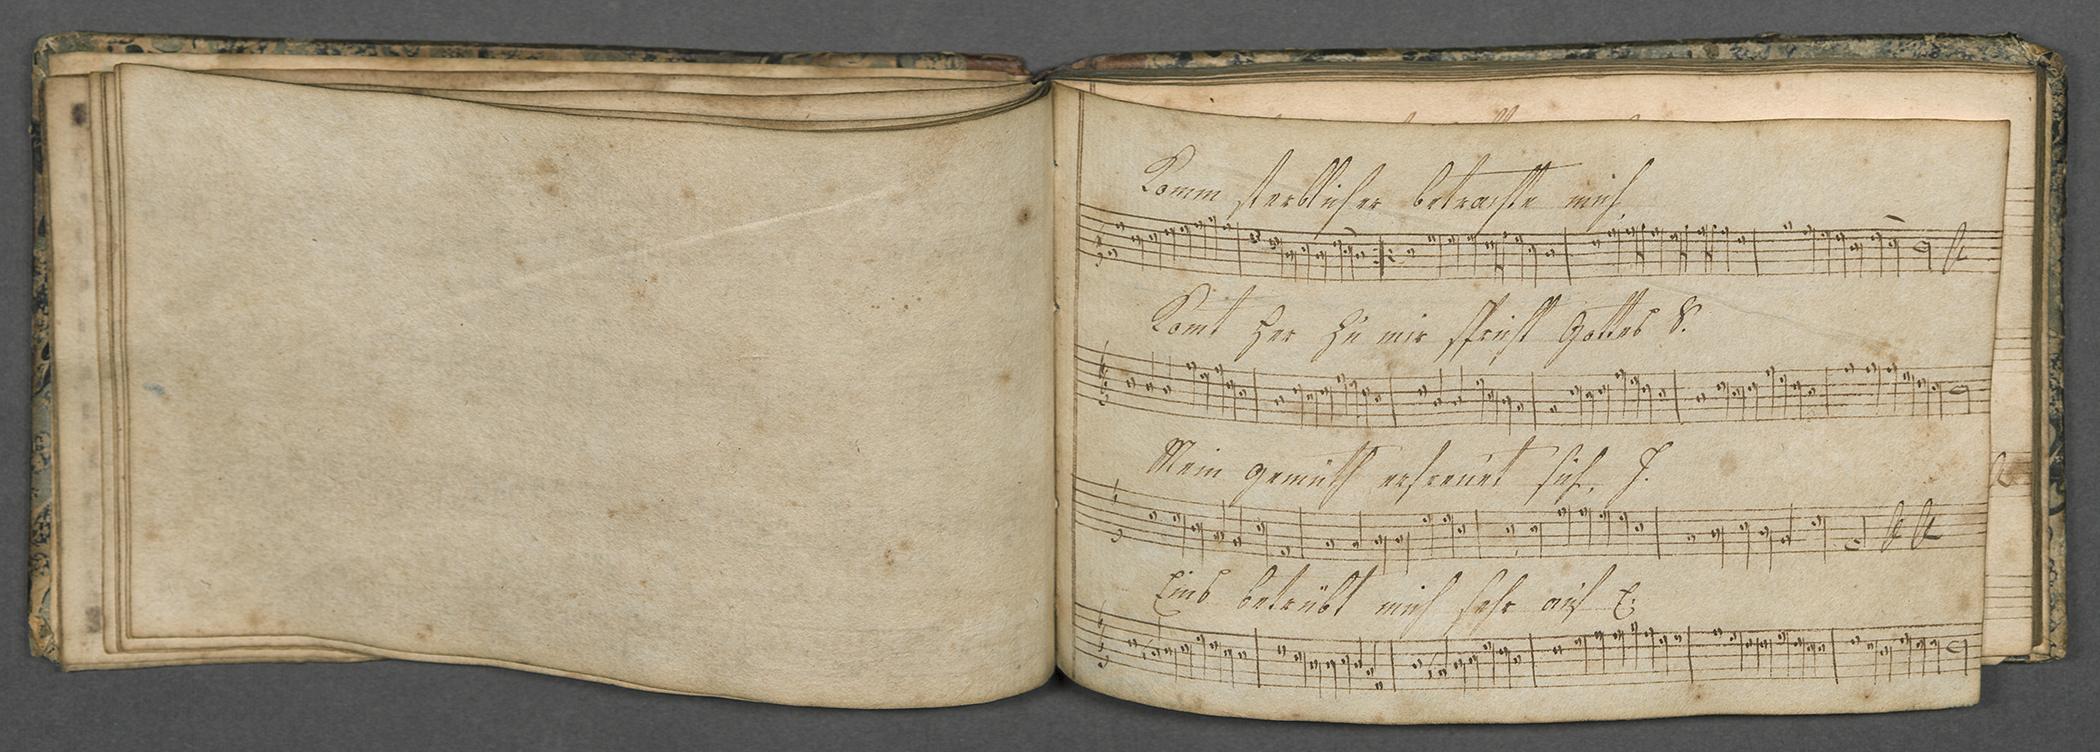 Komm sterblicher betrachte mich
Komt her zu mir spricht Gottes S.
Mein gemüth erfreuet sich, J.
Eins betrübt mich sehr auf E: